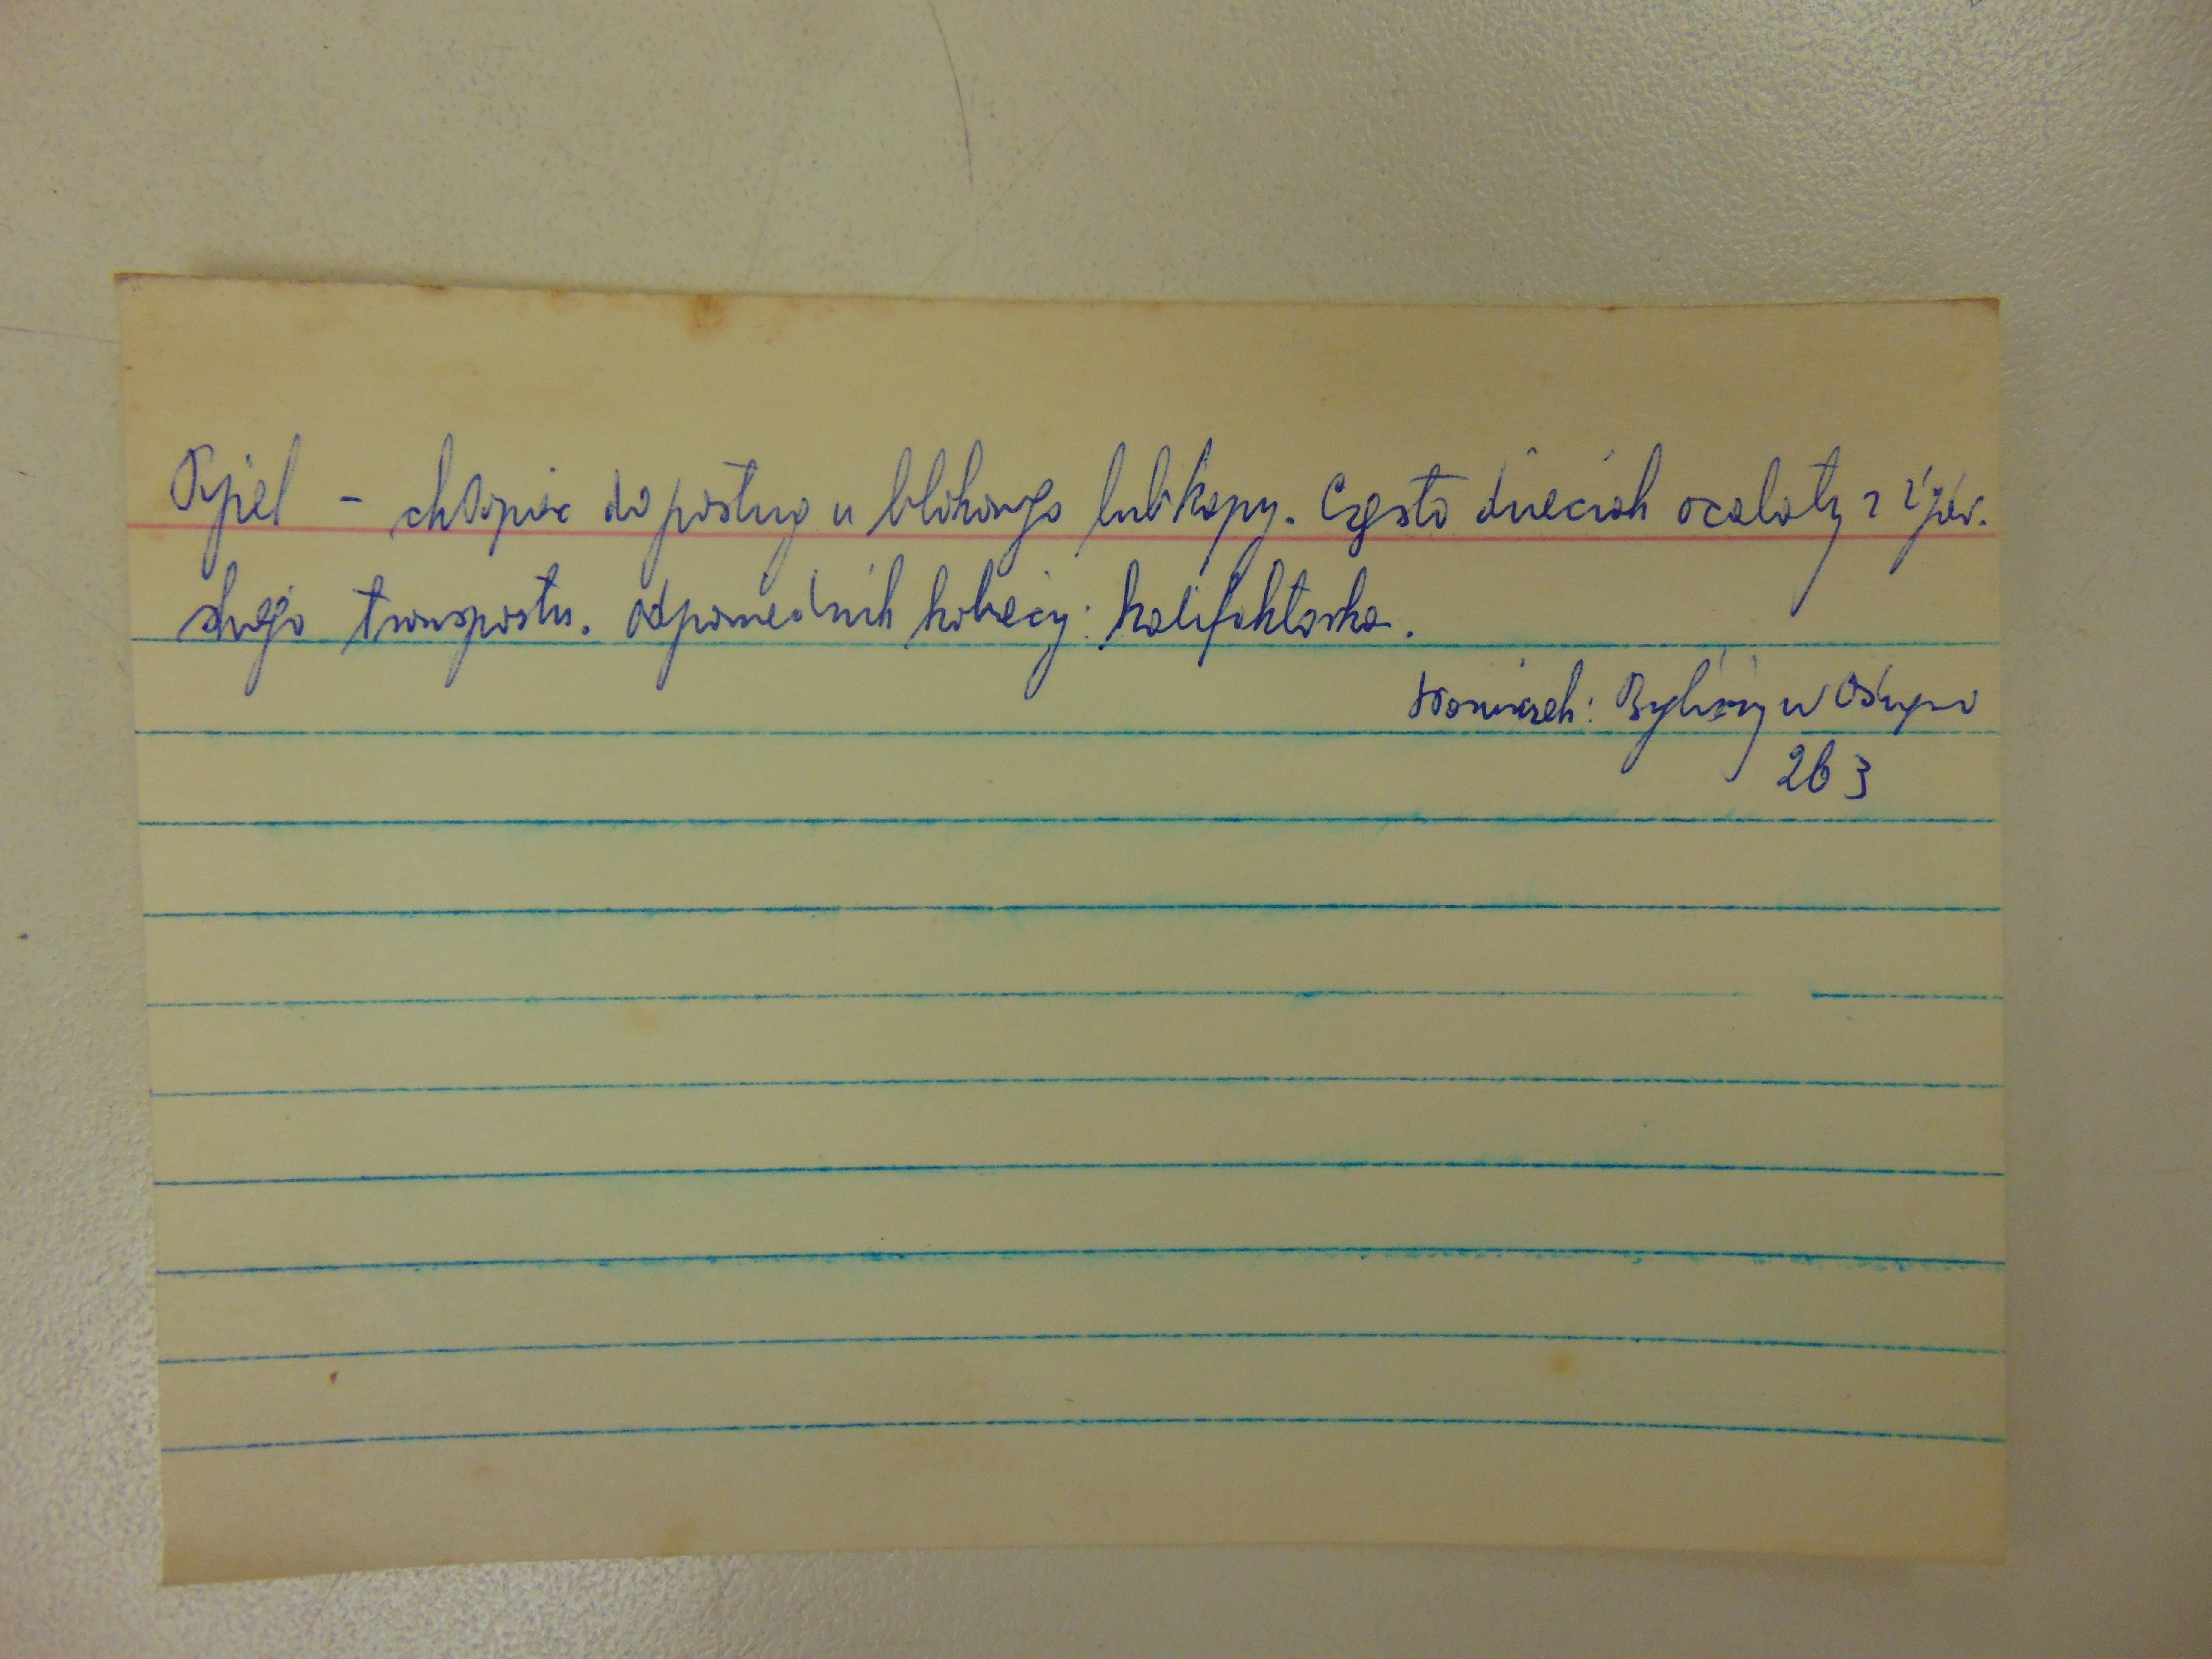 Pipel - chłopiec do posług u blokowego lub kapy. Często dzieciak ocalały z żydow.
skiego transportu. Odpowiednik kobiecy: kalifaktorka.
Krasucki: Byliśmy w Oświęc
263